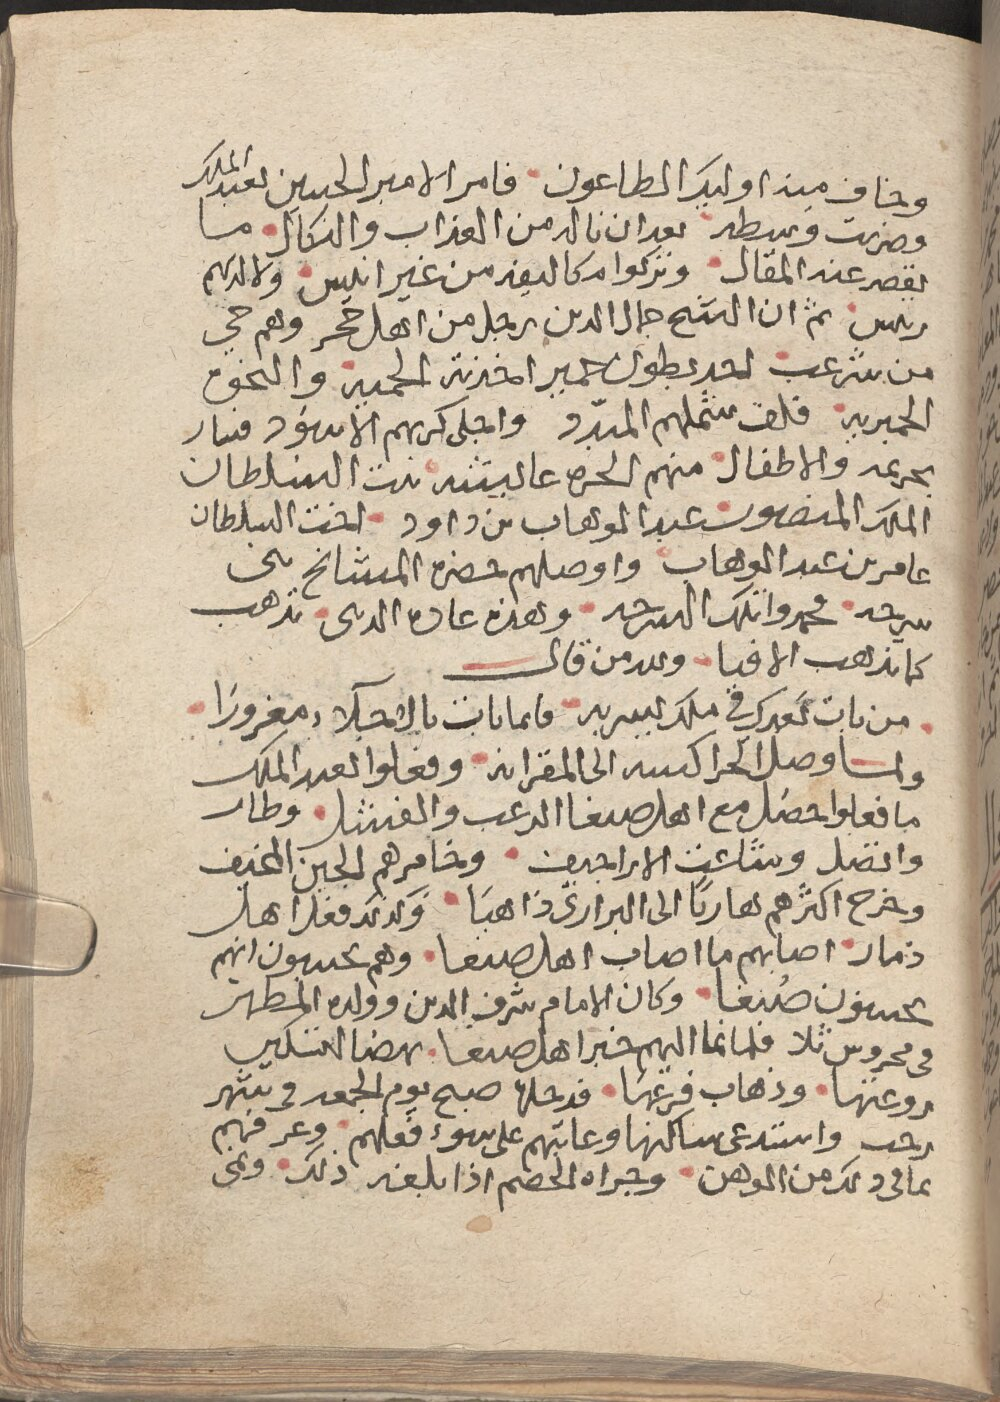 وخاف منه اوليك الطاعون فامر الامير الحسين بعبد الملك
وضربت وسطه بعد ان ناله من العذاب والنكال ما
يقصر عنه المقال وتركوا مكاليفه من غير انيس ولا لديهم
رييس ثم ان الشيخ جمال الدين رجل من اهل حجر وهم حي
من شرعب احد بطون حمير اخذته الحميه والنخوه
الحميريه فلف شملهم المبدد واجلى كربهم الاسود فسار
بحريمه والاطفال منهم الحره عايشه بنت السلطان
الملك المنصور عبد الوهاب بن داود اخت السلطان
عامر بن عبد الوهاب واوصلهم حضره المشايخ بني
سرحه محمد وانتك السرحه وهذه عاده الدنى تذهب
كما تذهب الافيا ولله من قال
من بات بعدك في ملك يسر به فانما بات بالاحلام مغرورا
ولما وصل الجراكسه الى المقرانه وفعلوا بعبد الملك
ما فعلوا حصل مع اهل صنعا الرعب والفشل وطار
واتصل وشاعت الاراجيف وخامرهم الجبن المخيف
وخرج اكثرهم هاربا الى البراري ذاهبا وكذلك فعل اهل
ذمار اصابهم ما اصاب اهل صنعا وهم يحسبون انهم
يحسنون صنعا وكان الامام شرف الدين وولده المطهر
في محروس ثلا فلما نما اليهم خبر اهل صنعا نهضا لتسكين
روعتها وذهاب فزعها فدخلها صبح يوم الجمعه في شهر
رجب واستدعى ساكنها وعاتبهم على سوء فعلهم وعرفهم
بما في ذلك من الوهن وجراه الخصم اذا بلغه ذلك ونمى